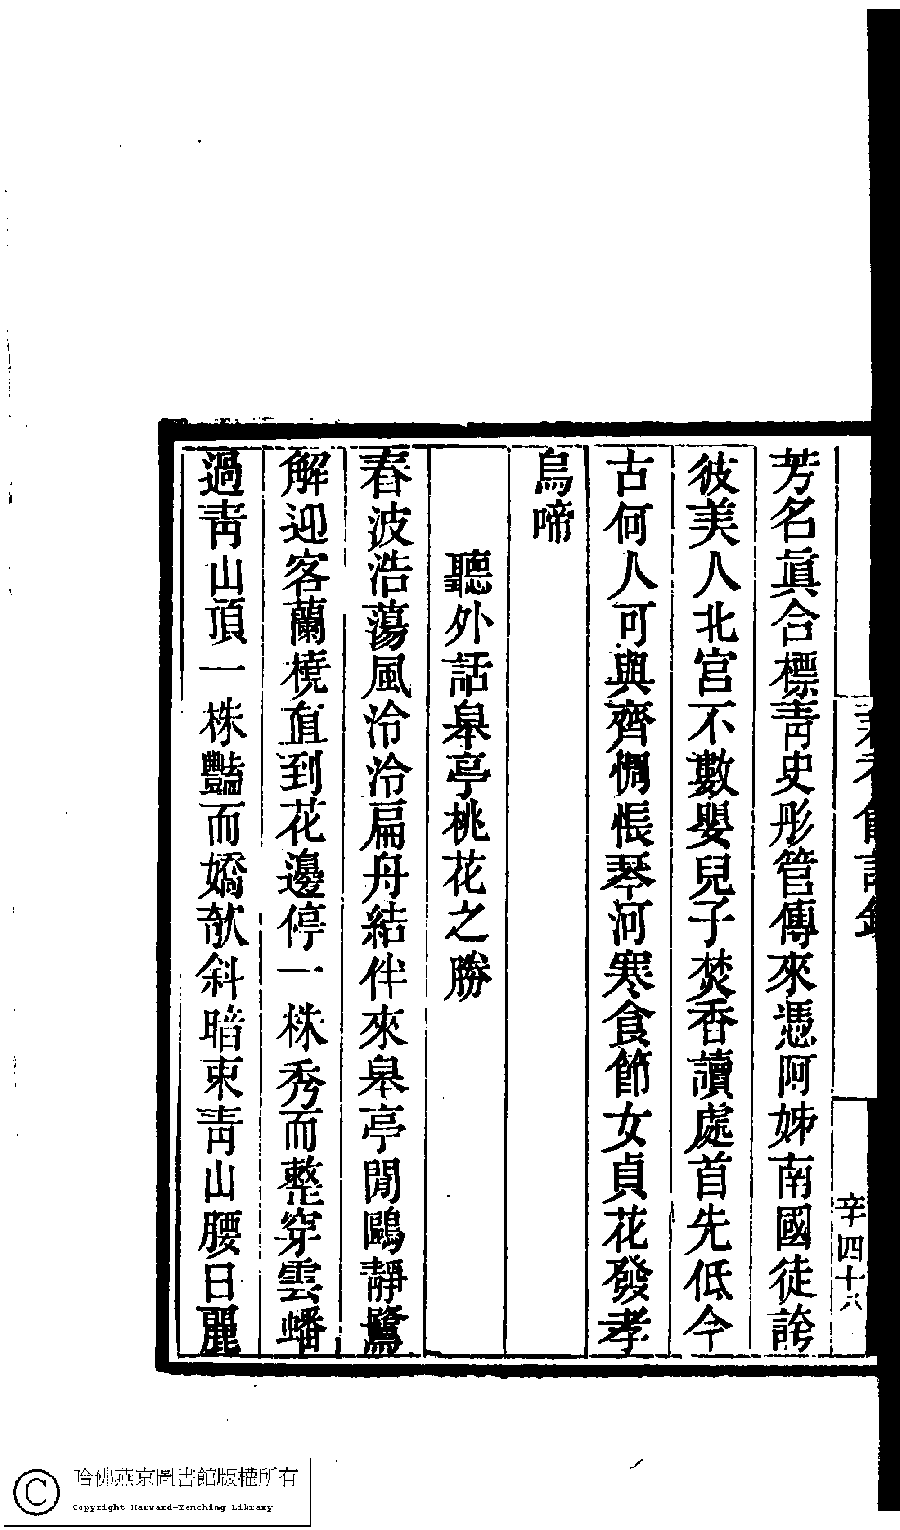 芳名眞合標靑史彤管傳來憑阿姊南國徒誇
彼美人北宮不數嬰兒子焚香讀處首先低今
古何人可與齊惆悵琴河寒食節女貞花發孝
烏啼
聽外話皋亭桃花之勝
春波浩蕩風泠泠扁舟結伴來皋亭閒鷗靜鷺
解迎客蘭橈直到花邊停一株秀而整穿雲蟠
過靑山頂一株豔而嬌欹斜暗束靑山腰日麗
辛四十六
哈佛燕京圖書館版權所有
Copyright Harvard-Yenching Library